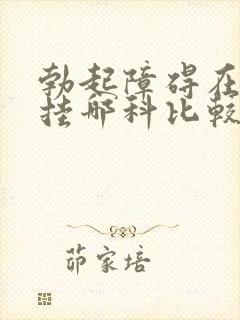 勃起障碍在
挂哪科比较
茆家培